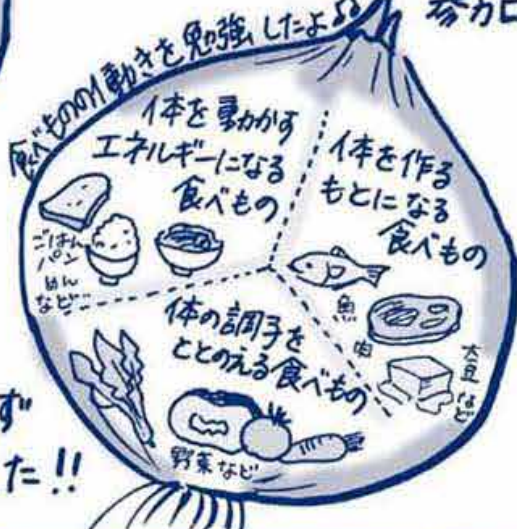 食べものの働きを勉強したよ♪♪
参加
体を動かす
エネルギーになる
食べもの
ごはん
パン
めん
など
体を作る
もとになる
食べもの
魚
肉
大豆
など
体の調子を
ととのえる食べもの
野菜など
ず
た!!